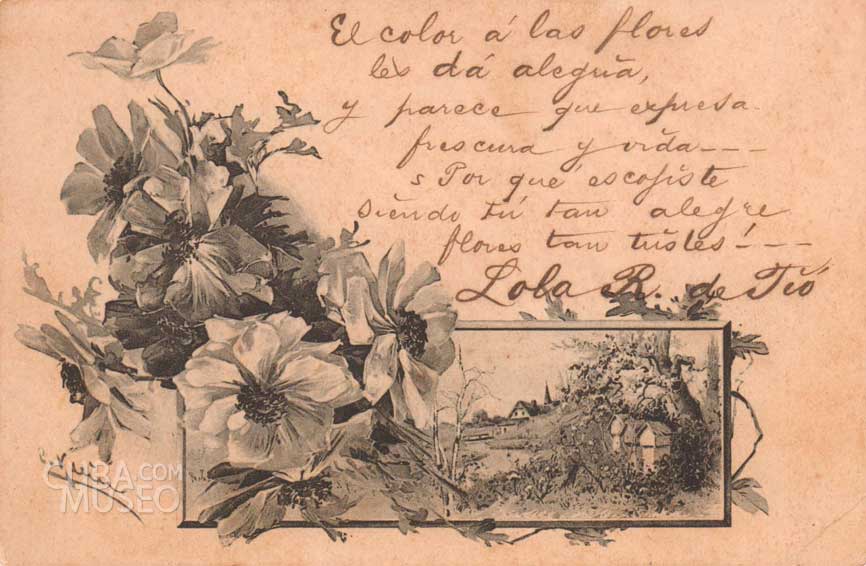 El color á las flores
les dá alegria,
y parece que expresa
frescura y vida----
s Por qué escojiste
siendo tú tan alegre
flores tan tristes!---
Lola R. de Tió
CUBA.COM
MUSEO